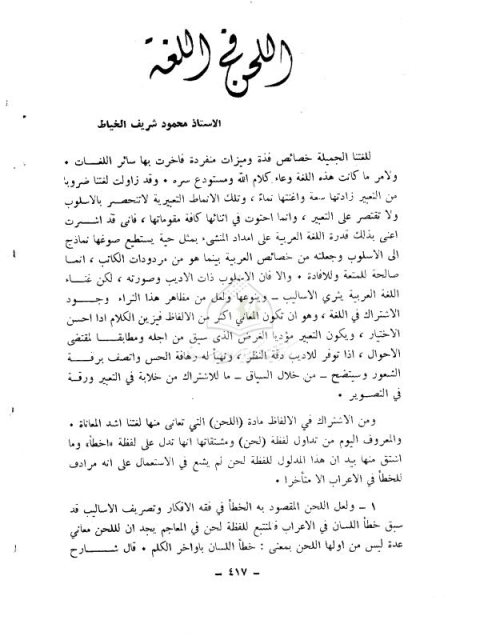 اللحن في اللغة
الاستاذ محمود شريف الخياط
للغتنا الجميلة خصائص فذة وميزات منفردة فاخرت بها سائر اللغات ٠
ولامر ما كانت هذه اللغة وعاء كلام الله ومستودع سره ٠ وقد زاولت لغتنا ضروبا
من التعبير زادتها سعة واغنتها نماء ، وتلك الانماط التعبيرية لاتنحصر بالاسلوب
ولا تقتصر على التعبير ، وانما احتوت في اثنائها كافة مقوماتها ، فانى قد اشرت
اعنى بذلك قدرة اللغة العربية على امداد المنشىء بمثل حية يستطيع صوغها نماذج
الى الاسلوب وجعلته من خصائص العربية بينما هو من مردودات الكاتب ، انما
صالحة للمتعة وللافادة ٠ والا فان الاسلوب ذات الاديب وصورته ، لكن غناء
اللغة العربية يثري الاساليب ــ وينوعها ولعل من مظاهر هذا الثراء وجود
الاشتراك في اللغة ، وهو ان تكون المعاني اكثر من الالفاظ فيزين الكلام اذا احسن
الاختيار ، ويكون التعبير مؤديا الغرض الذى سيق من اجله ومطابقا لمقتضى
الاحوال ، اذا توفر للاديب دقة النظر ، وتهيأ له رهافة الحس واتصف برقة
الشعور وسيتضح ــ من خلال السياق ــ ما للاشتراك من خلابة في التعبير ورقة
في التصوير ٠
ومن الاشتراك في الالفاظ مادة (اللحن) التي تعانى منها لغتنا اشد المعاناة ٠
والمعروف اليوم من تداول لفظة (لحن) ومشتقاتها انها تدل على لفظة «اخطأ» وما
اشتق منها بيد ان هذا المدلول للفظة لحن لم يشع في الاستعمال على انه مرادف
للخطأ في الاعراب الا متأخرا ٠
١ ــ ولعل اللحن المقصود به الخطأ في فقه الافكار وتصريف الاساليب قد
سبق خطأ اللسان في الاعراب فالمتتبع للفظة لحن في المعاجم يجد ان لللحن معاني
عدة ليس من اولها اللحن بمعنى : خطأ اللسان باواخر الكلم ٠ قال شارح
ــ ٤١٧ ــ